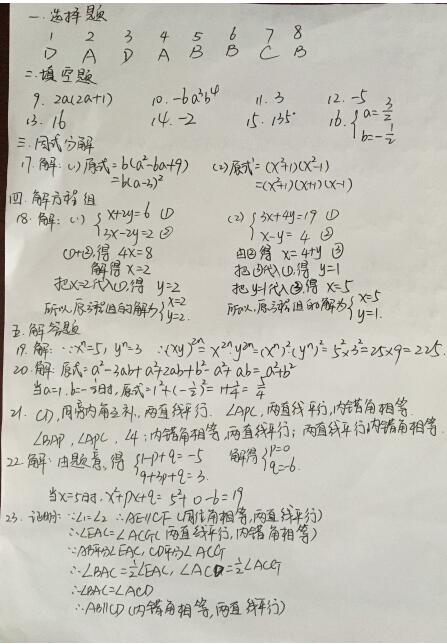 一.选择题
1 2 3 4 5 6 7 8
D A D A B B C B
二.填空题
9. 2a(2a+1) 10. -6a³b⁴ 11. 3 12. -5
13. 16 14. -2 15. 135° 16. { a=3/2 b=-1/2
三.因式分解
17.解:(1)原式=b(a²-6a+9) (2)原式=(x²+1)(x²-1)
=b(a-3)² =(x²+1)(x+1)(x-1)
四.解方程组
18.解:(1) { x+2y=6 ① 3x-2y=2 ② (2) { 3x+4y=19 ① x-y=4 ②
①+②,得 4x=8 由②得 x=4+y ③
解得 x=2 把③代入①,得 y=1
把x=2代入①,得 y=2 把y=1代入③,得 x=5
所以,原方程组的解为{ x=2 y=2. 所以,原方程组的解为{ x=5 y=1.
五.解答题
19.解:∵xⁿ=5, yⁿ=3 ∴(xy)²ⁿ=x²ⁿ·y²ⁿ=(xⁿ)²·(yⁿ)²=5²×3²=25×9=225.
20.解:原式=a²-3ab+a²+2ab+b²-a²+ab=a²+b²
当a=1.b=-1/2时,原式=1²+(-1/2)²=1+1/4=5/4
21. CD,同旁内角互补,两直线平行. ∠APC,两直线平行,内错角相等.
∠BAP,∠APC,∠4;内错角相等,两直线平行;两直线平行,内错角相等.
22.解:由题意,得 { 1-p+q=-5 9+3p+q=3. 解得{ p=0 q=-6.
当x=5时,x²+px+q=5²+0-6=19
23.证明:∵∠1=∠2 ∴AE∥CF(同位角相等,两直线平行)
∴∠EAC=∠ACG(两直线平行,内错角相等)
∵AB平分∠EAC,CD平分∠ACG
∴∠BAC=1/2∠EAC,∠ACD=1/2∠ACG
∴∠BAC=∠ACD
∴AB∥CD(内错角相等,两直线平行)